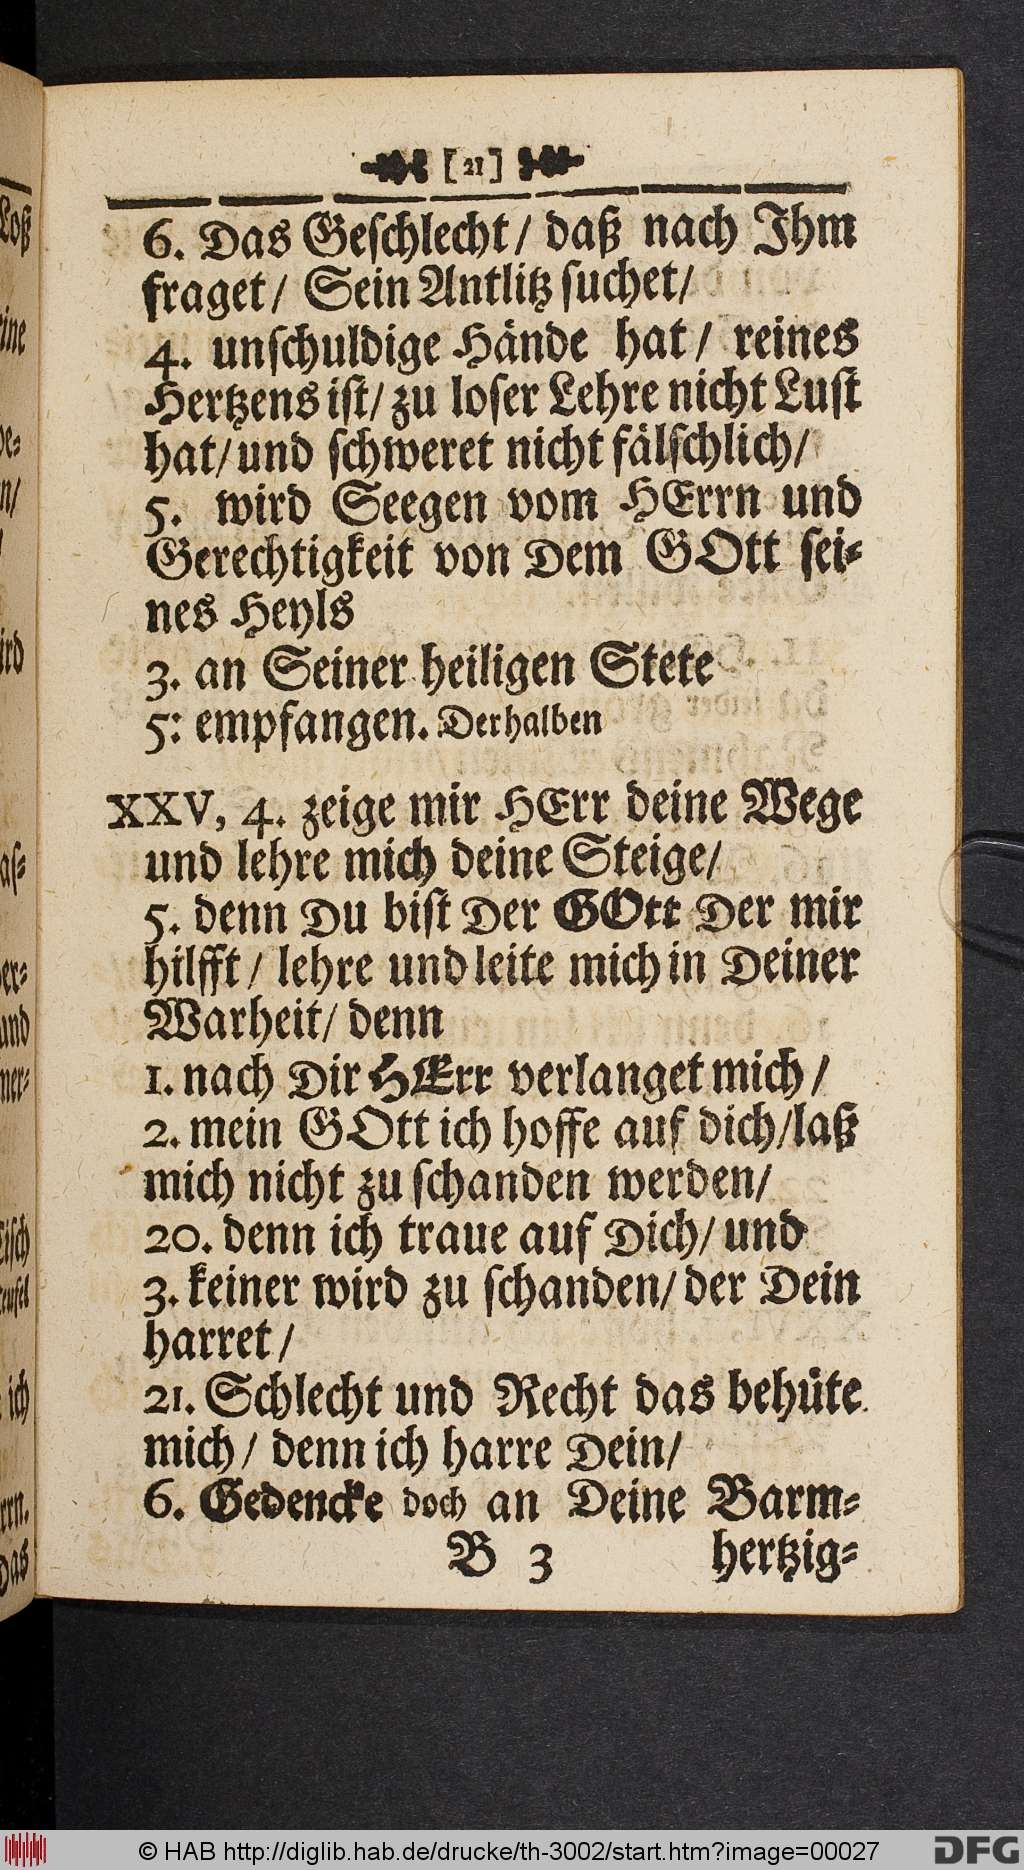 [21]
6. Das Geschlecht / daß nach Ihm
fraget / Sein Antlitz suchet /
4. unschuldige Hände hat / reines
Hertzens ist / zu loser Lehre nicht Lust
hat / und schweret nicht fälschlich /
5. wird Seegen vom HErrn und
Gerechtigkeit von Dem GOtt sei=
nes Heyls
3. an Seiner heiligen Stete
5: empfangen. Derhalben
XXV, 4. zeige mir HErr deine Wege
und lehre mich deine Steige /
5. denn Du bist Der GOtt Der mir
hilfft / lehre und leite mich in Deiner
Warheit / denn
1. nach Dir HErr verlanget mich /
2. mein GOtt ich hoffe auf dich / laß
mich nicht zu schanden werden /
20. denn ich traue auf Dich / und
3. keiner wird zu schanden / der Dein
harret /
21. Schlecht und Recht das behüte
mich / denn ich harre Dein /
6. Gedencke doch an Deine Barm=
B 3 hertzig=
© HAB http://diglib.hab.de/drucke/th-3002/start.htm?image=00027
DFG